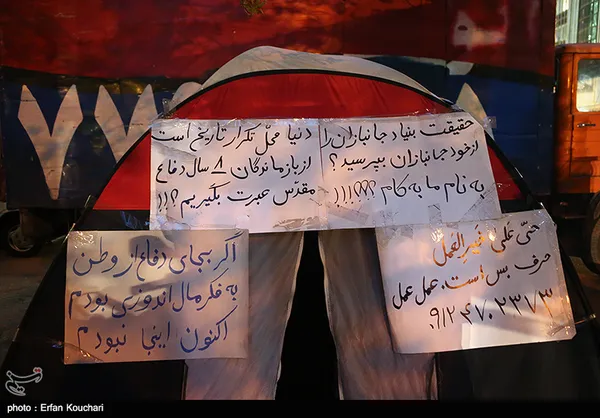 حقیقت بنیاد جانبازان را
از خود جانبازان بپرسید؟
به نام ما به کام ؟؟؟!!!!
دنیا محل تکرار تاریخ است
از بازماندگان ۸ سال دفاع
مقدس عبرت بگیریم؟!!
حتی علی خیرالعمل
حرف بس است. عمل عمل
اگر بجای دفاع از وطن
به فکر مال اندوزی بودم
اکنون اینجا نبودم
۷۷
photo : Erfan Kouchari